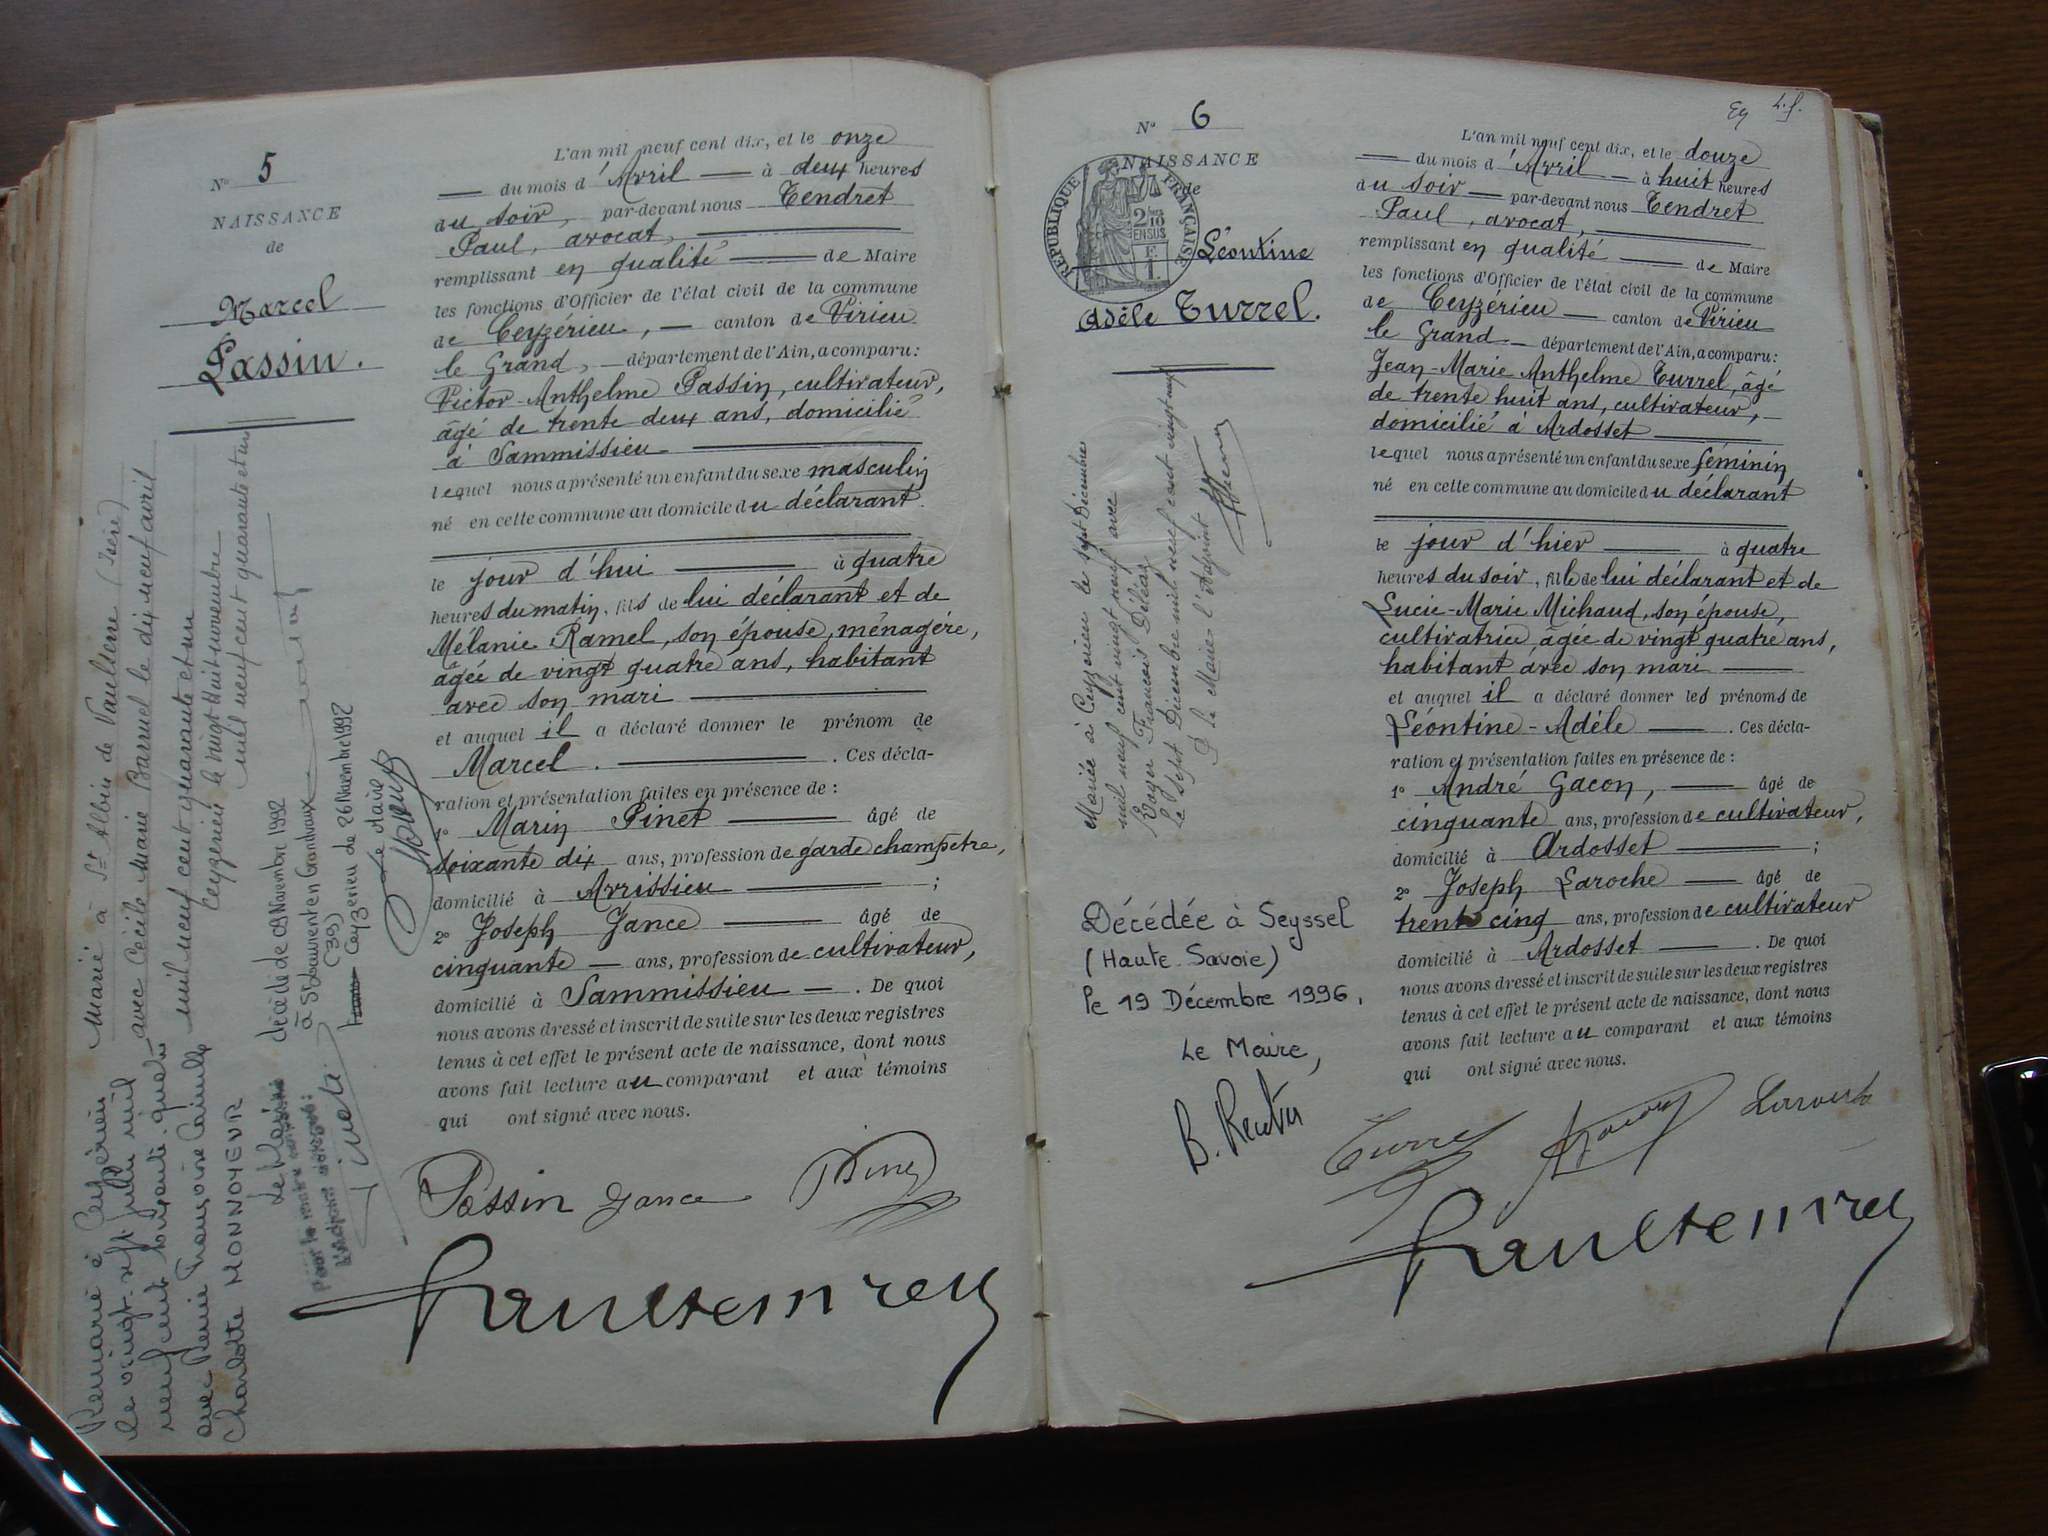 N° 5
NAISSANCE
de
Marcel
Passin.
L'an mil neuf cent dix, et le onze
du mois d'Avril à deux heures
du soir, par-devant nous Tendret
Paul, avocat,
remplissant en qualité de Maire
les fonctions d'Officier de l'état civil de la commune
de Ceyzérieu, canton de Virieu
le Grand, département de l'Ain, a comparu:
Victor-Anthelme Passin, cultivateur,
âgé de trente deux ans, domicilié
à Sammissieu
lequel nous a présenté un enfant du sexe masculin
né en cette commune au domicile du déclarant.
le jour d'hui à quatre
heures du matin, fils de lui déclarant et de
Mélanie Ramel, son épouse, ménagère,
âgée de vingt quatre ans, habitant
avec son mari
et auquel il a déclaré donner le prénom de
Marcel. Ces décla-
ration et présentation faites en présence de :
1° Marin Pinet âgé de
soixante dix ans, profession de garde champêtre,
domicilié à Avrissieu ;
2° Joseph Jance âgé de
cinquante ans, profession de cultivateur,
domicilié à Sammissieu. De quoi
nous avons dressé et inscrit de suite sur les deux registres
tenus à cet effet le présent acte de naissance, dont nous
avons fait lecture au comparant et aux témoins
qui ont signé avec nous.
Passin Jance Pinet
Marié à St Albin de Vaulserre (Isère)
avec Cécile Marie Barruel le dix neuf avril
mil neuf cent quarante et un
Ceyzérieu le vingt huit novembre
mil neuf cent quarante et un
Remarié à Ceyzérieu
le vingt-sept juillet mil
neuf cent soixante-quatre
avec Renée Françoise Camille
Charlotte MONNOYEUR
Le Maire
Pour le maire
l'Adjoint délégué:
décédé le 09 Novembre 1992
à St Laurent en Grandvaux
(39)
Ceyzerieu le 26 Novembre 1992
Le Maire
N° 6
NAISSANCE
de
RÉPUBLIQUE FRANÇAISE
Léontine
Adèle Turrel.
L'an mil neuf cent dix, et le douze
du mois d'Avril à huit heures
du soir par-devant nous Tendret
Paul, avocat,
remplissant en qualité de Maire
les fonctions d'Officier de l'état civil de la commune
de Ceyzérieu canton de Virieu
le Grand département de l'Ain, a comparu:
Jean-Marie Anthelme Turrel, âgé
de trente huit ans, cultivateur,
domicilié à Ardosset
lequel nous a présenté un enfant du sexe féminin
né en cette commune au domicile du déclarant
le jour d'hier à quatre
heures du soir, fille de lui déclarant et de
Lucie-Marie Michaud, son épouse,
cultivatrice, âgée de vingt quatre ans,
habitant avec son mari
et auquel il a déclaré donner les prénoms de
Léontine-Adèle. Ces décla-
ration et présentation faites en présence de :
1° André Gacon, âgé de
cinquante ans, profession de cultivateur,
domicilié à Ardosset ;
2° Joseph Laroche âgé de
trente cinq ans, profession de cultivateur
domicilié à Ardosset. De quoi
nous avons dressé et inscrit de suite sur les deux registres
tenus à cet effet le présent acte de naissance, dont nous
avons fait lecture au comparant et aux témoins
qui ont signé avec nous.
Mariée à Ceyzérieu le sept Décembre
mil neuf cent vingt neuf avec
Roger François
Le sept Décembre mil neuf cent vingt neuf
P le Maire l'Adjoint
Décédée à Seyssel
(Haute Savoie)
le 19 Décembre 1996.
Le Maire,
Turrel Gacon Laroche